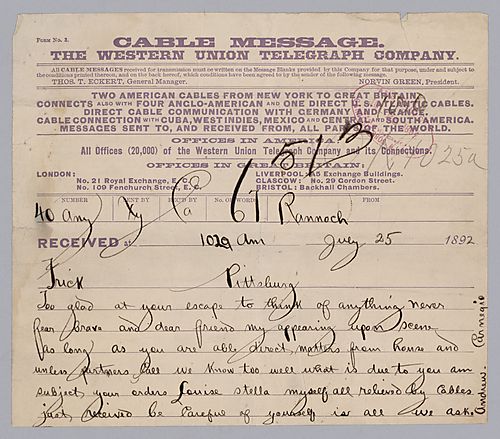 Form No. 2.
CABLE MESSAGE.
THE WESTERN UNION TELEGRAPH COMPANY.
All CABLE MESSAGES received for transmission must be written on the Message Blanks provided by this Company for that purpose, under and subject to
the conditions printed thereon, and on the back hereof, which conditions have been agreed to by the sender of the following message.
THOS. T. ECKERT, General Manager. NORVIN GREEN, President.
TWO AMERICAN CABLES FROM NEW YORK TO GREAT BRITAIN.
CONNECTS ALSO WITH FOUR ANGLO-AMERICAN AND ONE DIRECT U.S. ATLANTIC CABLES.
DIRECT CABLE COMMUNICATION WITH GERMANY AND FRANCE.
CABLE CONNECTION WITH CUBA, WEST INDIES, MEXICO AND CENTRAL AND SOUTH AMERICA.
MESSAGES SENT TO, AND RECEIVED FROM, ALL PARTS OF THE WORLD.
OFFICES IN AMERICA:
All Offices (20,000) of the Western Union Telegraph Company and its Connections.
OFFICES IN GREAT BRITAIN:
LONDON: LIVERPOOL: A5 Exchange Buildings.
No. 21 Royal Exchange, E.C. GLASGOW: No. 29 Gordon Street.
No. 109 Fenchurch Street, E.C. BRISTOL: Backhall Chambers.
NUMBER SENT BY REC'D BY No. OF WORDS FROM
40 Any Xy Ca 67 Rannoch
RECEIVED at 1029 am July 25 1892
Frick Pittsburg
Too glad at your escape to think of anything never
fear brave and dear friend my appearing upon scene
as long as you are able direct matters from house and
unless partners call we know too well what is due to you am
subject your orders Louise stella myself all relieved by Cables
just received be careful of yourself is all we ask.
Andrew. Carnegie